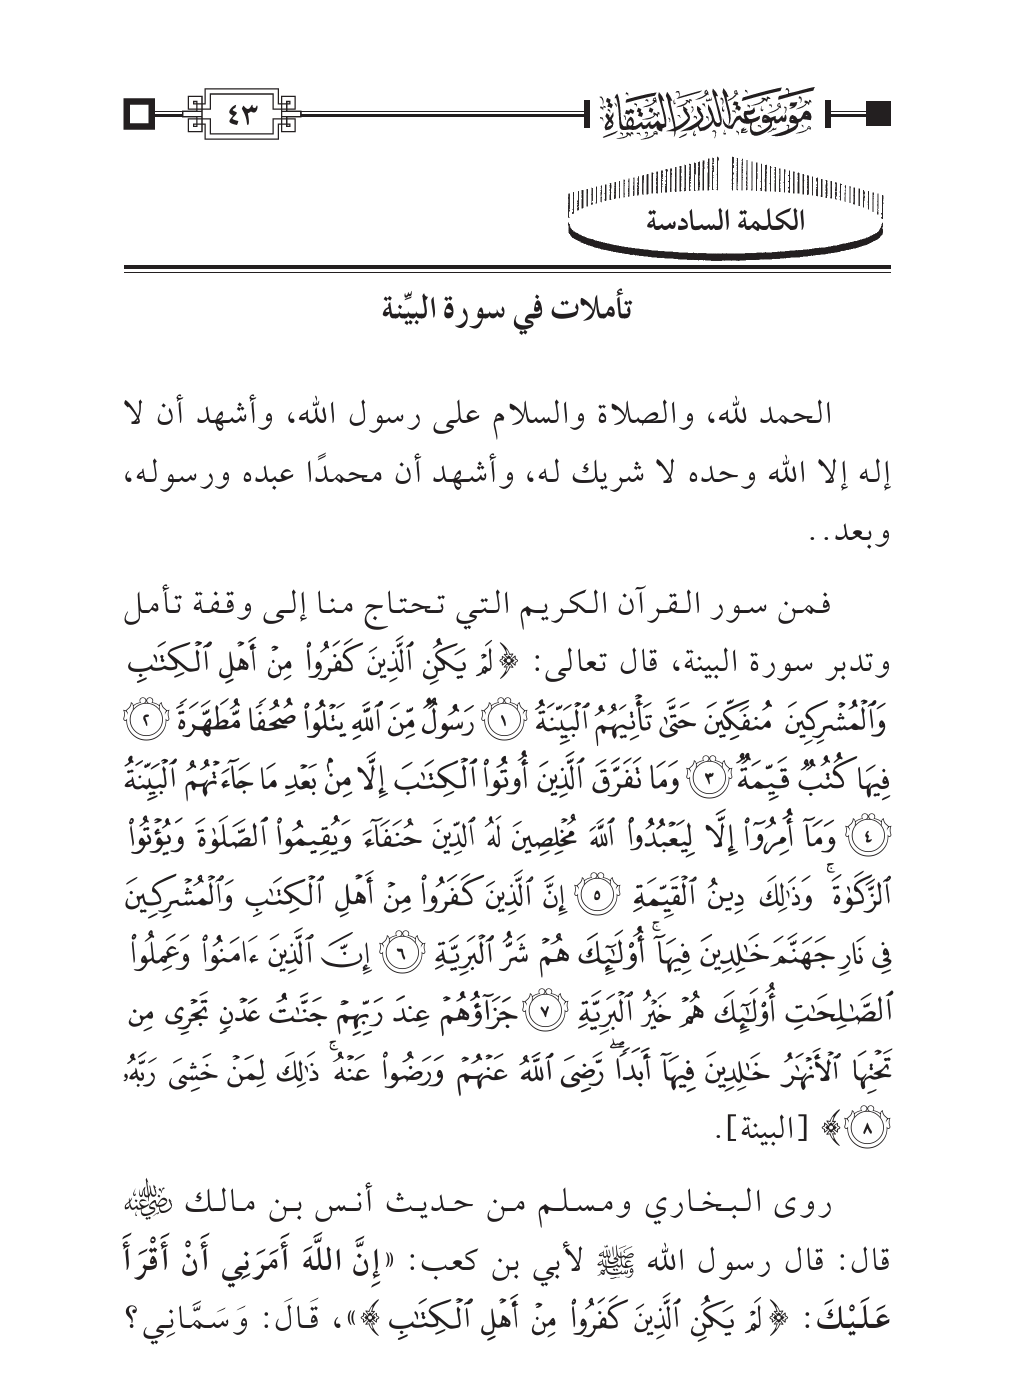 موسوعة الدرر المنتقاة
٤٣
الكلمة السادسة
تأملات في سورة البيِّنة
الحمد لله، والصلاة والسلام على رسول الله، وأشهد أن لا
إله إلا الله وحده لا شريك له، وأشهد أن محمدًا عبده ورسوله،
وبعد..
فمن سور القرآن الكريم التي تحتاج منا إلى وقفة تأمل
وتدبر سورة البينة، قال تعالى: ﴿لَمْ يَكُنِ ٱلَّذِينَ كَفَرُوا۟ مِنْ أَهْلِ ٱلْكِتَٰبِ
وَٱلْمُشْرِكِينَ مُنفَكِّينَ حَتَّىٰ تَأْتِيَهُمُ ٱلْبَيِّنَةُ ١ رَسُولٌ مِّنَ ٱللَّهِ يَتْلُوا۟ صُحُفًا مُّطَهَّرَةً ٢
فِيهَا كُتُبٌ قَيِّمَةٌ ٣ وَمَا تَفَرَّقَ ٱلَّذِينَ أُوتُوا۟ ٱلْكِتَٰبَ إِلَّا مِنۢ بَعْدِ مَا جَآءَتْهُمُ ٱلْبَيِّنَةُ
٤ وَمَآ أُمِرُوٓا۟ إِلَّا لِيَعْبُدُوا۟ ٱللَّهَ مُخْلِصِينَ لَهُ ٱلدِّينَ حُنَفَآءَ وَيُقِيمُوا۟ ٱلصَّلَوٰةَ وَيُؤْتُوا۟
ٱلزَّكَوٰةَ ۚ وَذَٰلِكَ دِينُ ٱلْقَيِّمَةِ ٥ إِنَّ ٱلَّذِينَ كَفَرُوا۟ مِنْ أَهْلِ ٱلْكِتَٰبِ وَٱلْمُشْرِكِينَ
فِى نَارِ جَهَنَّمَ خَٰلِدِينَ فِيهَآ ۚ أُو۟لَٰٓئِكَ هُمْ شَرُّ ٱلْبَرِيَّةِ ٦ إِنَّ ٱلَّذِينَ ءَامَنُوا۟ وَعَمِلُوا۟
ٱلصَّٰلِحَٰتِ أُو۟لَٰٓئِكَ هُمْ خَيْرُ ٱلْبَرِيَّةِ ٧ جَزَآؤُهُمْ عِندَ رَبِّهِمْ جَنَّٰتُ عَدْنٍ تَجْرِى مِن
تَحْتِهَا ٱلْأَنْهَٰرُ خَٰلِدِينَ فِيهَآ أَبَدًا ۖ رَّضِىَ ٱللَّهُ عَنْهُمْ وَرَضُوا۟ عَنْهُ ۚ ذَٰلِكَ لِمَنْ خَشِىَ رَبَّهُۥ
٨﴾ [البينة].
روى البخاري ومسلم من حديث أنس بن مالك رضي الله عنه
قال: قال رسول الله ﷺ لأبي بن كعب: «إِنَّ اللَّهَ أَمَرَنِي أَنْ أَقْرَأَ
عَلَيْكَ: ﴿لَمْ يَكُنِ ٱلَّذِينَ كَفَرُوا۟ مِنْ أَهْلِ ٱلْكِتَٰبِ﴾»، قَالَ: وَسَمَّانِي؟